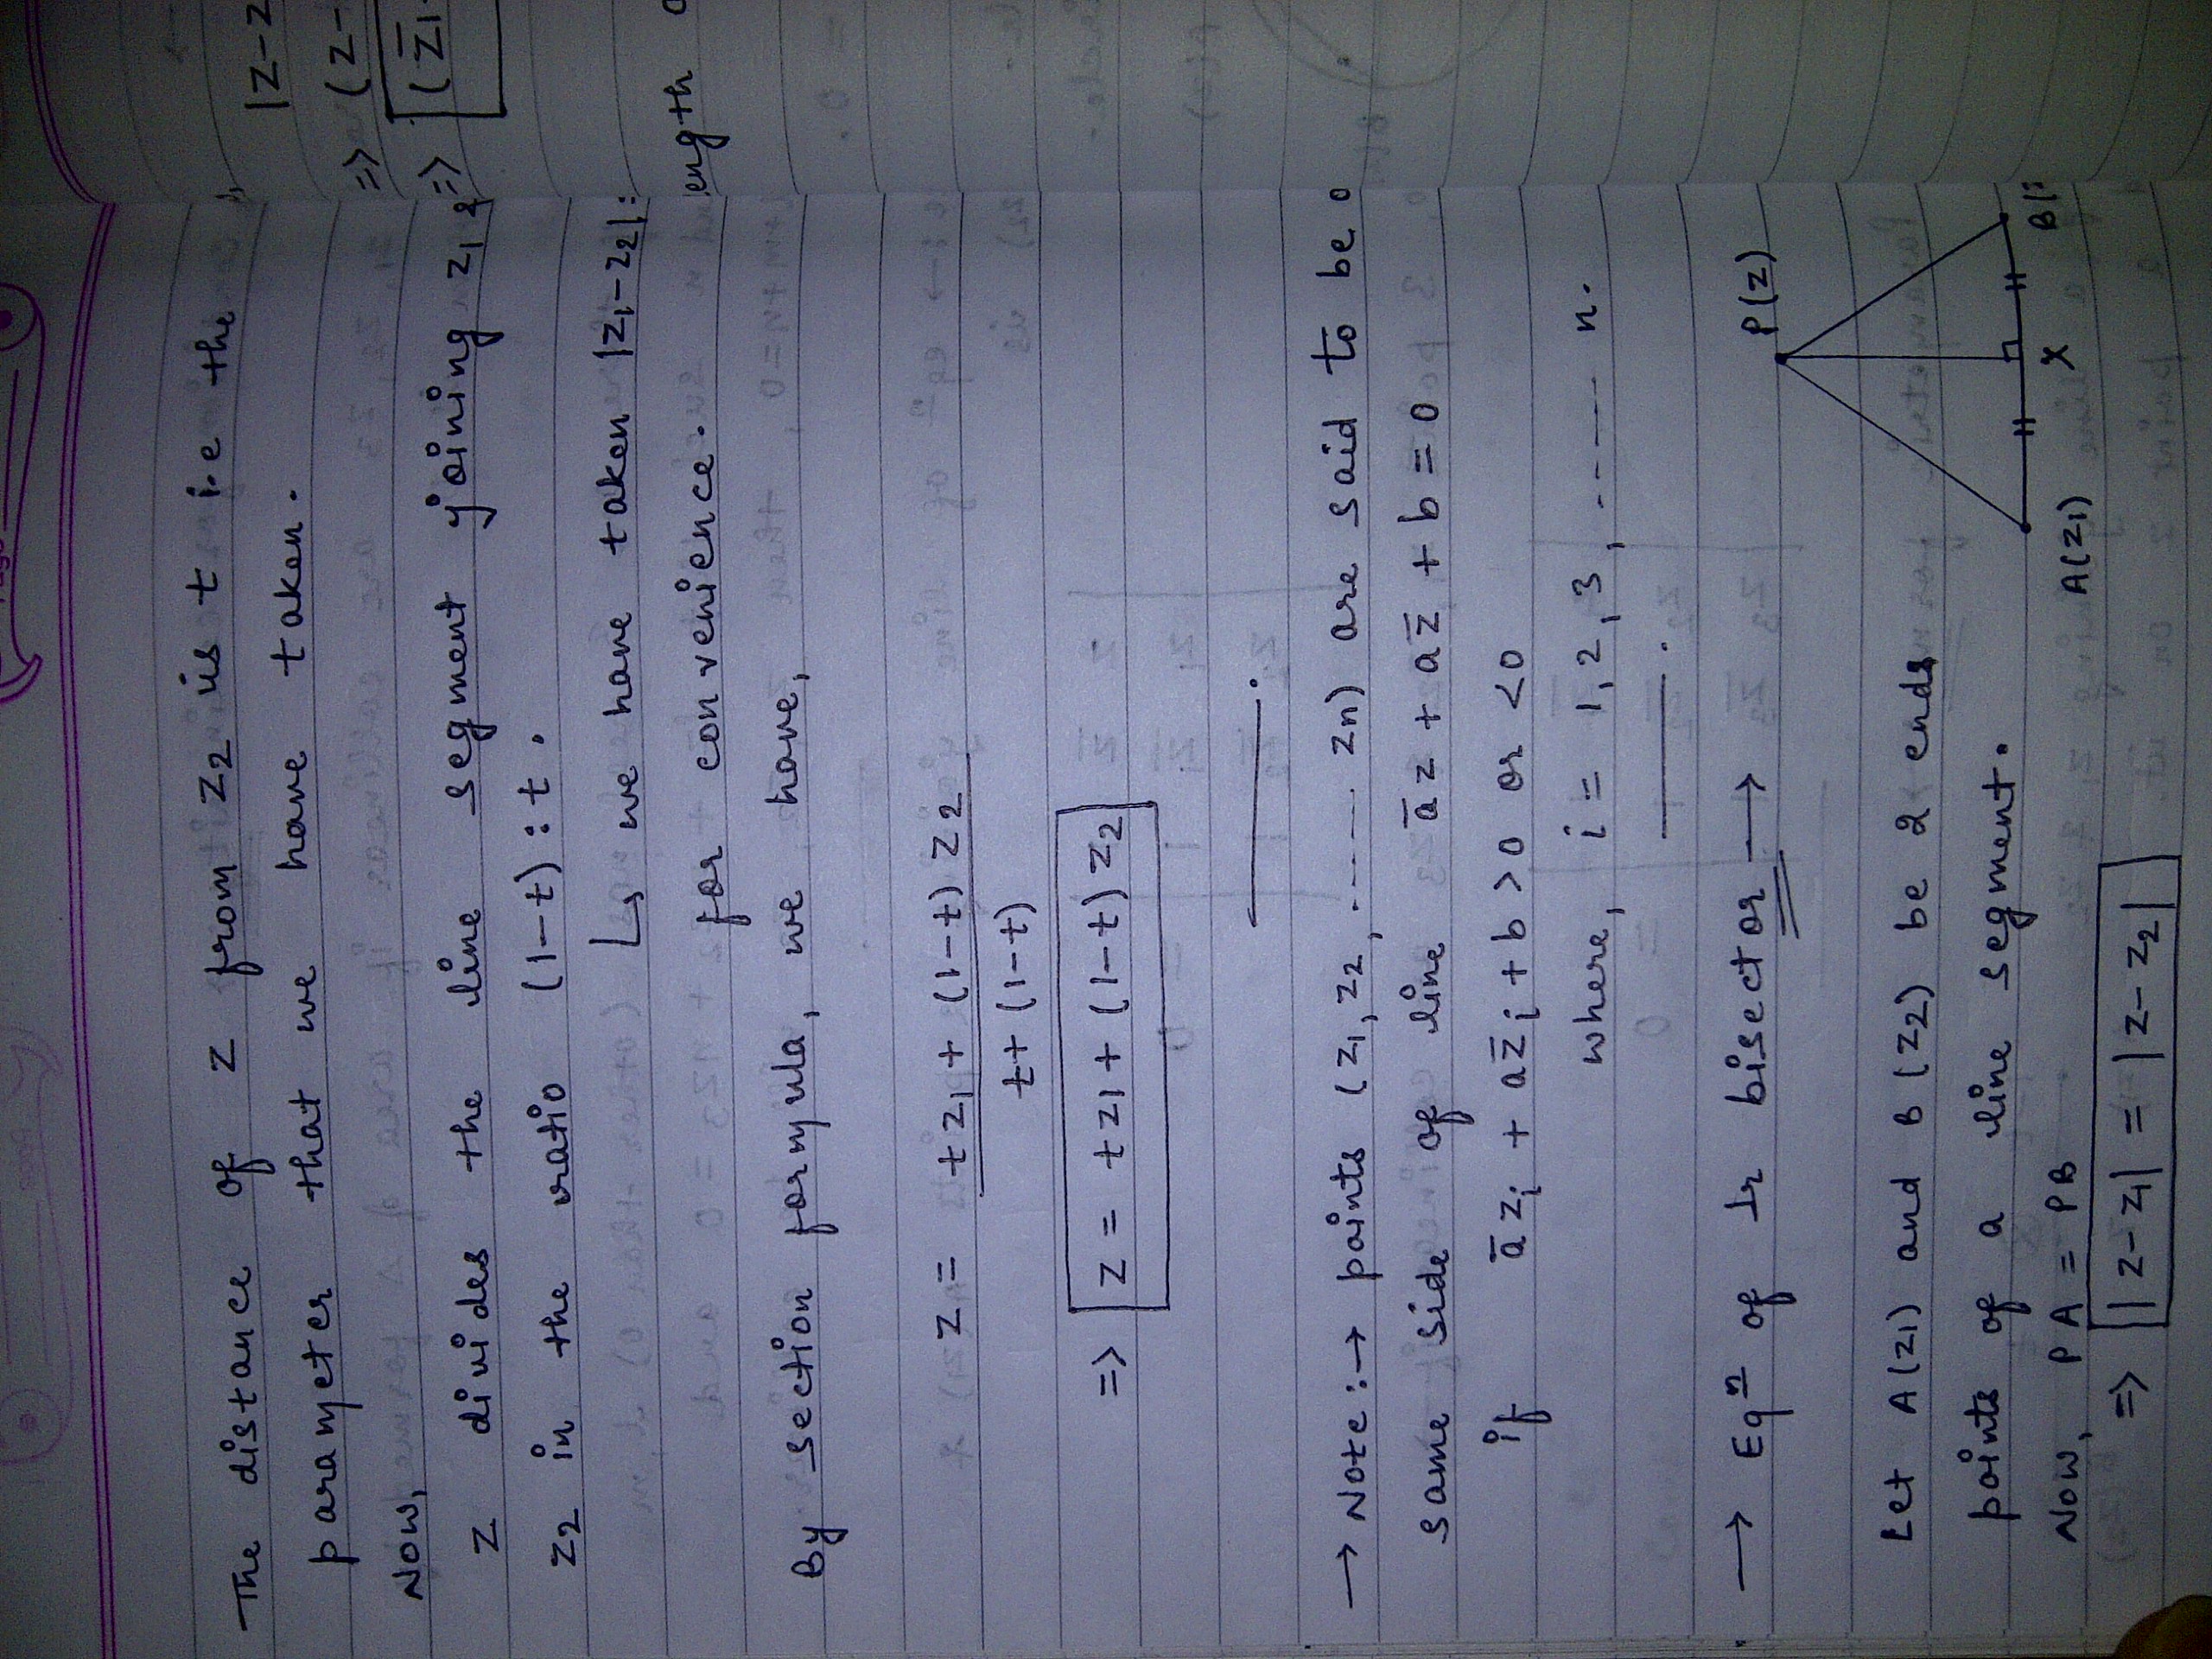 The distance of z from z2 is t i.e the
parameter that we have taken.
Now,
z divides the line segment joining z1 &
z2 in the ratio (1-t):t.
↳ we have taken |z1-z2|=
for convenience.
By section formula, we have,
z = tz1 + (1-t) z2
t+ (1-t)
=> z = tz1 + (1-t) z2
→ Note:→ points (z1, z2, ...... zn) are said to be o
same side of line āz + az̄ + b = 0
if āzi + az̄i + b >0 or <0
where, i = 1, 2, 3, ...... n.
→ Eqn of ⊥r bisector →
P(z)
Let A(z1) and B(z2) be 2 ends
points of a line segment.
A(z1) X B(z
Now, PA = PB
=> |z-z1| = |z-z2|
|z-z
=> (z-
=> (z̄1
ength o